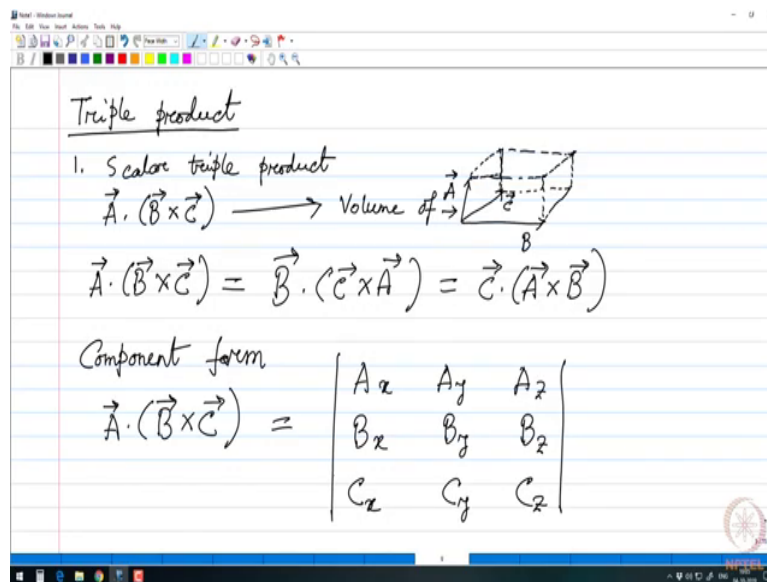 Note1 - Windows Journal
File Edit View Insert Actions Tools Help
Page Width
B I
Triple product
1. Scalar triple product
A⃗ . (B⃗ × C⃗) ⟶ Volume of → A⃗ B C⃗
A⃗ . (B⃗ × C⃗) = B⃗ . (C⃗ × A⃗) = C⃗ . (A⃗ × B⃗)
Component form
A⃗ . (B⃗ × C⃗) = | Ax Ay Az |
| Bx By Bz |
| Cx Cy Cz |
NPTEL
ENG